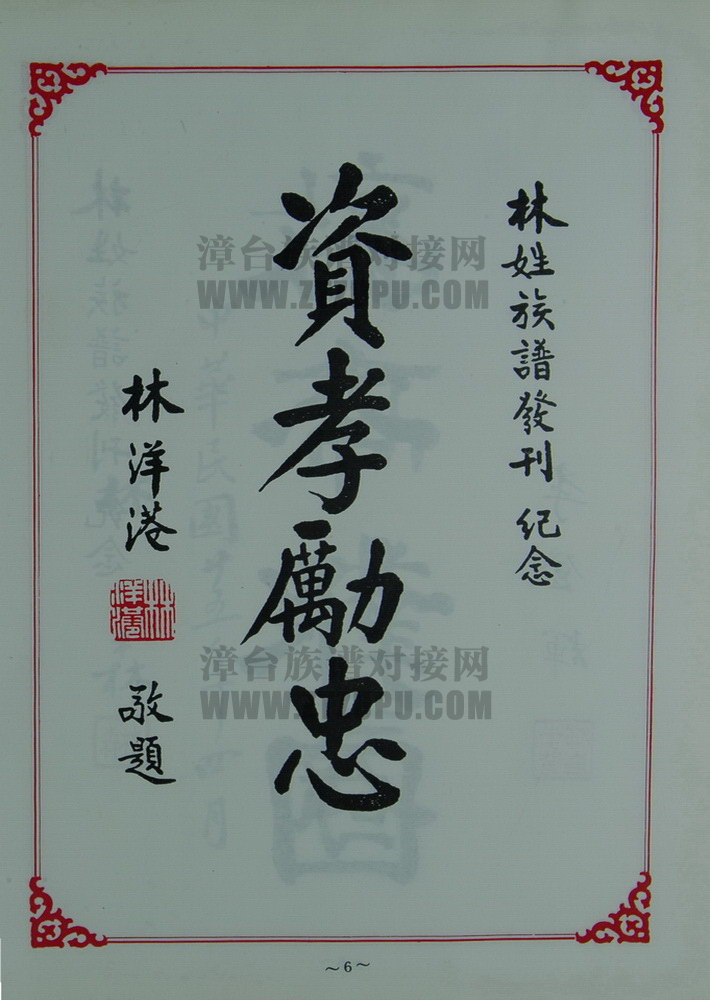 林姓族譜發刊 紀念
資孝勵忠
林洋港
林洋港
敬題
漳台族谱对接网
漳台族谱对接网
~6~